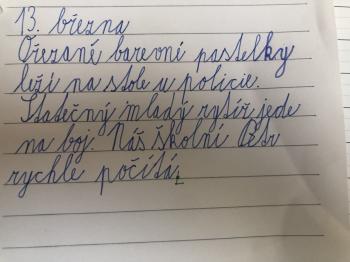 13. března
Ořezané barevné pastelky
leží na stole u policie.
Statečný mladý rytíř jede
na boj. Náš školní Petr
rychle počítá.